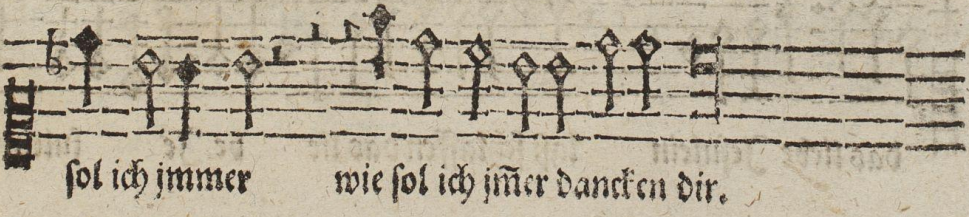 ſol ich jmmer wie ſol ich jm̄er dancken dir.